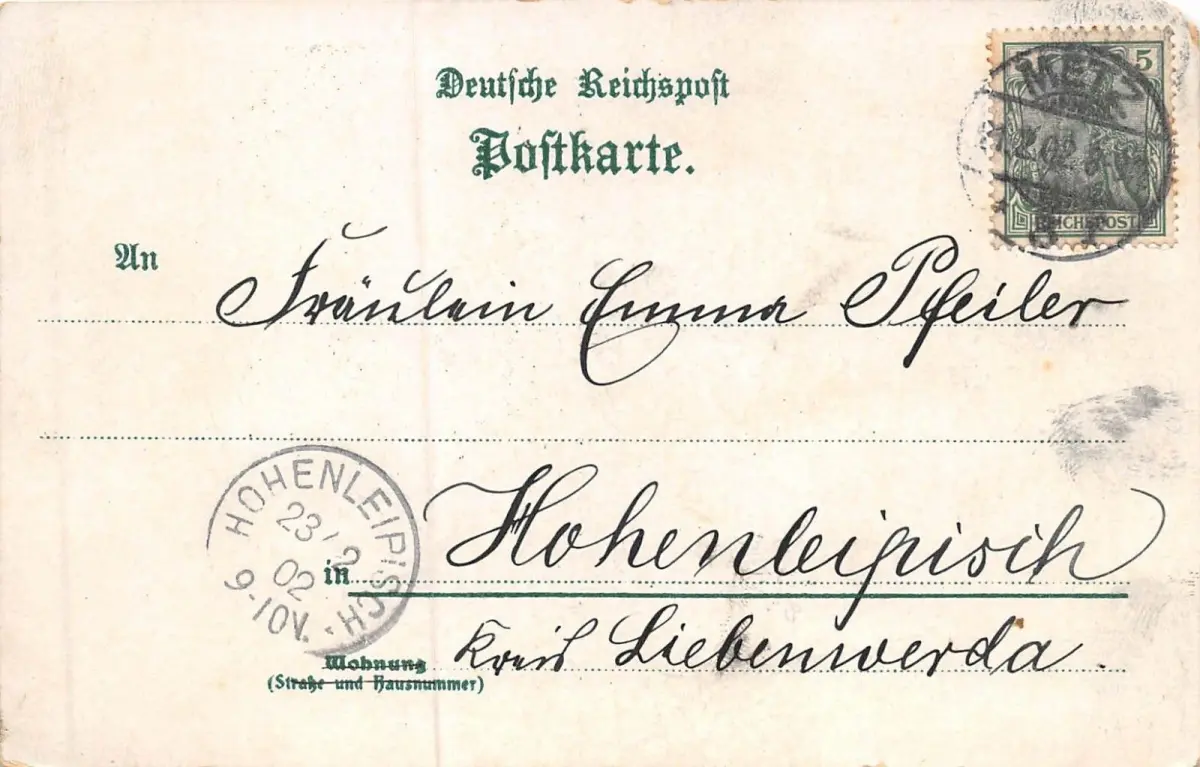 Deutsche Reichspost
Postkarte.
5
METZ
2.02
REICHSPOST
An
Fräulein Emma Pfeiler
HOHENLEIPISCH
23/2
02
9-10V.
in Hohenleipisch
Wohnung
(Straße und Hausnummer)
Kreis Liebenwerda.